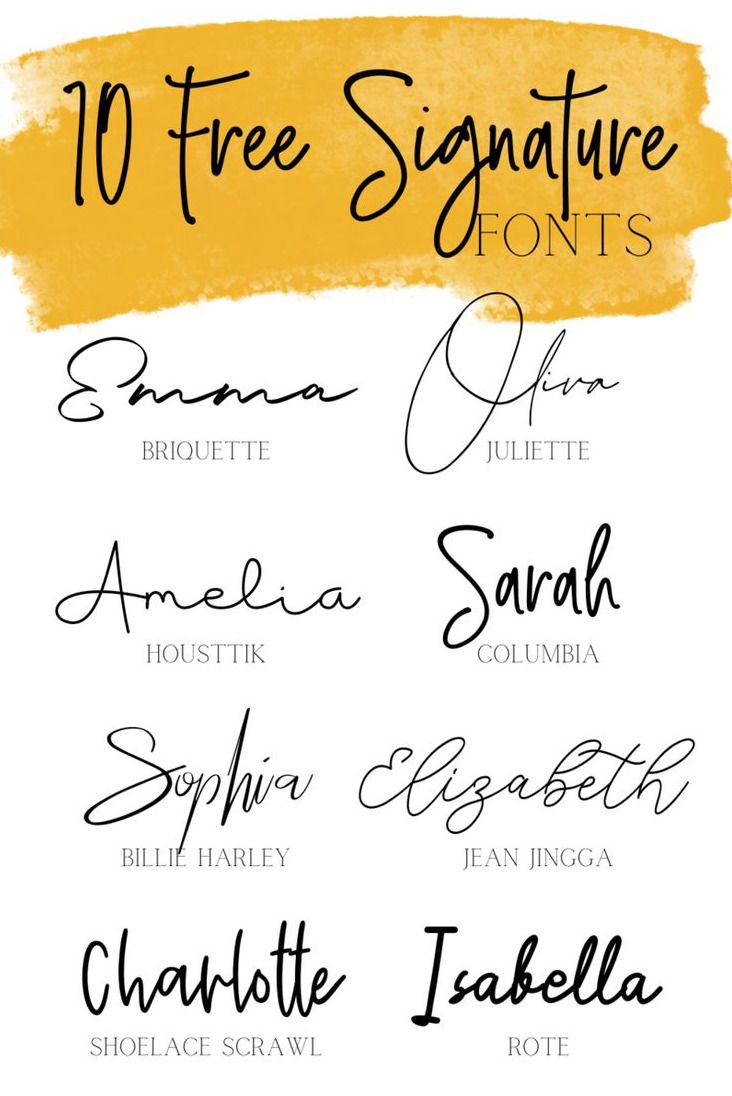 10 Free Signature
FONTS
Emma
BRIQUETTE
Oliva
JULIETTE
Amelia
HOUSTTIK
Sarah
COLUMBIA
Sophia
BILLIE HARLEY
Elizabeth
JEAN JINGGA
Charlotte
SHOELACE SCRAWL
Isabella
ROTE